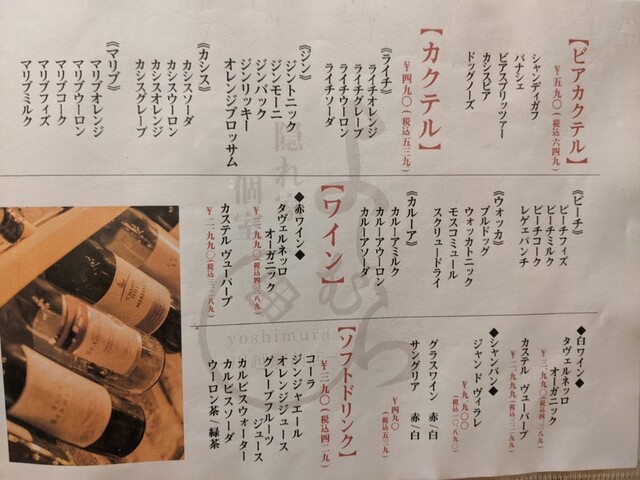 【ビアカクテル】
￥五九〇(税込六四九)
シャンディガフ
パナシェ
ビアスプリッツァー
カシスビア
ドッグノーズ
【カクテル】
￥四九〇(税込五三九)
《ライチ》
ライチオレンジ
ライチグレープ
ライチウーロン
ライチソーダ
《ジン》
ジントニック
ジンモーニ
ジンバック
ジンリッキー
オレンジブロッサム
《カシス》
カシスソーダ
カシスウーロン
カシスオレンジ
カシスグレープ
《マリブ》
マリブオレンジ
マリブウーロン
マリブコーク
マリブフィズ
マリブミルク
《ピーチ》
ピーチフィズ
ピーチミルク
ピーチコーク
レゲエパンチ
《ウォッカ》
ブルドッグ
ウォッカトニック
モスコミュール
スクリュードライ
《カルーア》
カルーアミルク
カルーアウーロン
カルーアソーダ
【ワイン】
◆赤ワイン◆
タヴェルネッロ
オーガニック
￥三、九九〇(税込四、三八九)
カステル ヴューバーブ
￥二、九九〇(税込三、二八九)
◆白ワイン◆
タヴェルネッロ
オーガニック
￥三、九九〇(税込四、三八九)
カステル ヴューバーブ
￥二、九九九(税込三、二八九)
◆シャンパン◆
ジャン ドヴィラレ
￥九、九〇〇
(税込一〇、八九〇)
グラスワイン 赤/白
サングリア 赤/白
￥四九〇
(税込五三九)
【ソフトドリンク】
￥三九〇(税込四二九)
コーラ
ジンジャエール
オレンジジュース
グレープフルーツ
ジュース
カルピスウォーター
カルピスソーダ
ウーロン茶/緑茶
よしむら
隠れ家
個室
yoshimura